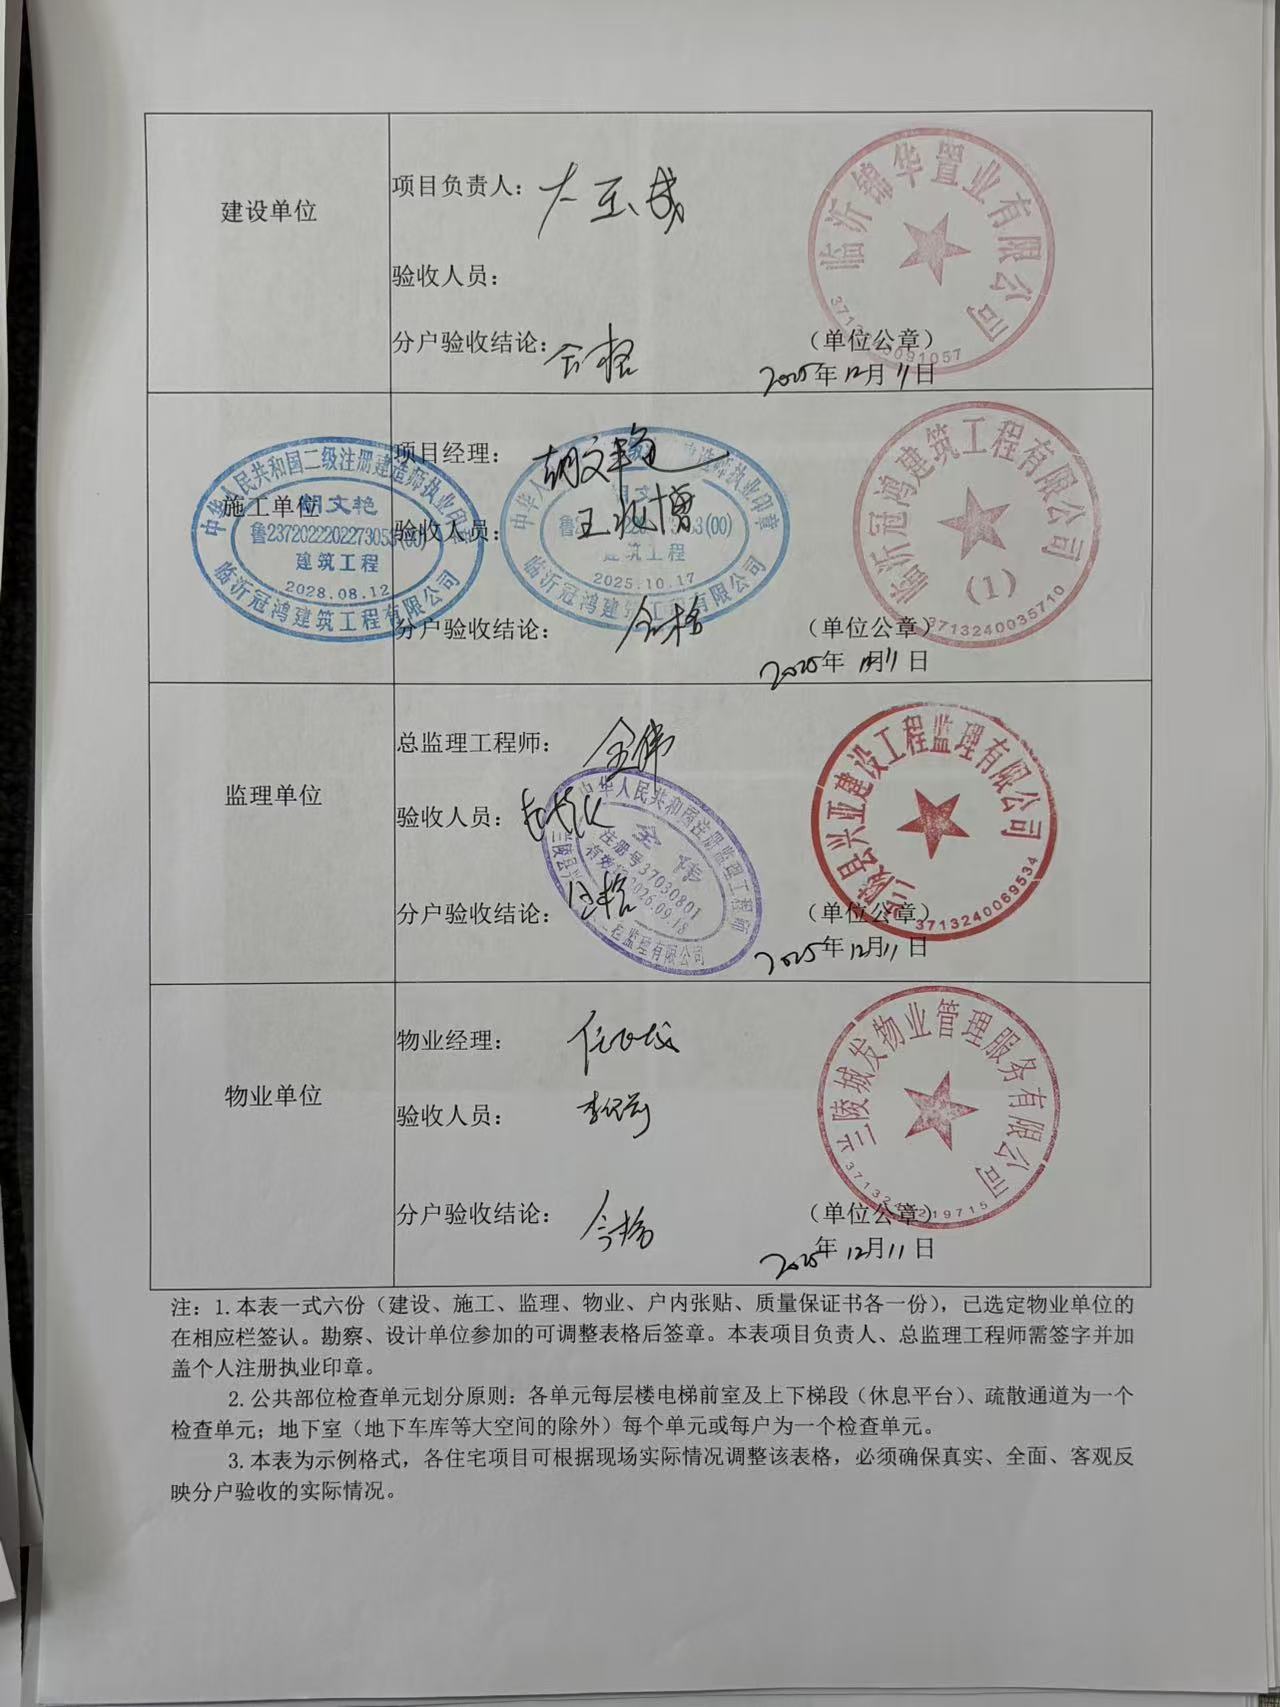 建设单位
项目负责人：
验收人员：
分户验收结论：合格
（单位公章）
2025年12月11日
临沂锦华置业有限公司
施工单位
项目经理：胡文艳
验收人员：
分户验收结论：合格
（单位公章）
2025年12月11日
中华人民共和国二级注册建造师执业印章
胡文艳
鲁2372022202273053(00)
建筑工程
2028.08.12
临沂冠鸿建筑工程有限公司
建筑工程
2025.10.17
临沂冠鸿建筑工程有限公司
临沂冠鸿建筑工程有限公司
(1)
3713240035710
监理单位
总监理工程师：全伟
验收人员：
分户验收结论：合格
（单位公章）
2025年12月11日
中华人民共和国注册监理工程师
全伟
注册号37030801
2026.09.18
兰陵县兴亚建设工程监理有限公司
3713240069534
物业单位
物业经理：
验收人员：
分户验收结论：合格
（单位公章）
2025年12月11日
兰陵城发物业管理服务有限公司
注：1.本表一式六份（建设、施工、监理、物业、户内张贴、质量保证书各一份），已选定物业单位的
在相应栏签认。勘察、设计单位参加的可调整表格后签章。本表项目负责人、总监理工程师需签字并加
盖个人注册执业印章。
2.公共部位检查单元划分原则：各单元每层楼电梯前室及上下梯段（休息平台）、疏散通道为一个
检查单元；地下室（地下车库等大空间的除外）每个单元或每户为一个检查单元。
3.本表为示例格式，各住宅项目可根据现场实际情况调整该表格，必须确保真实、全面、客观反
映分户验收的实际情况。